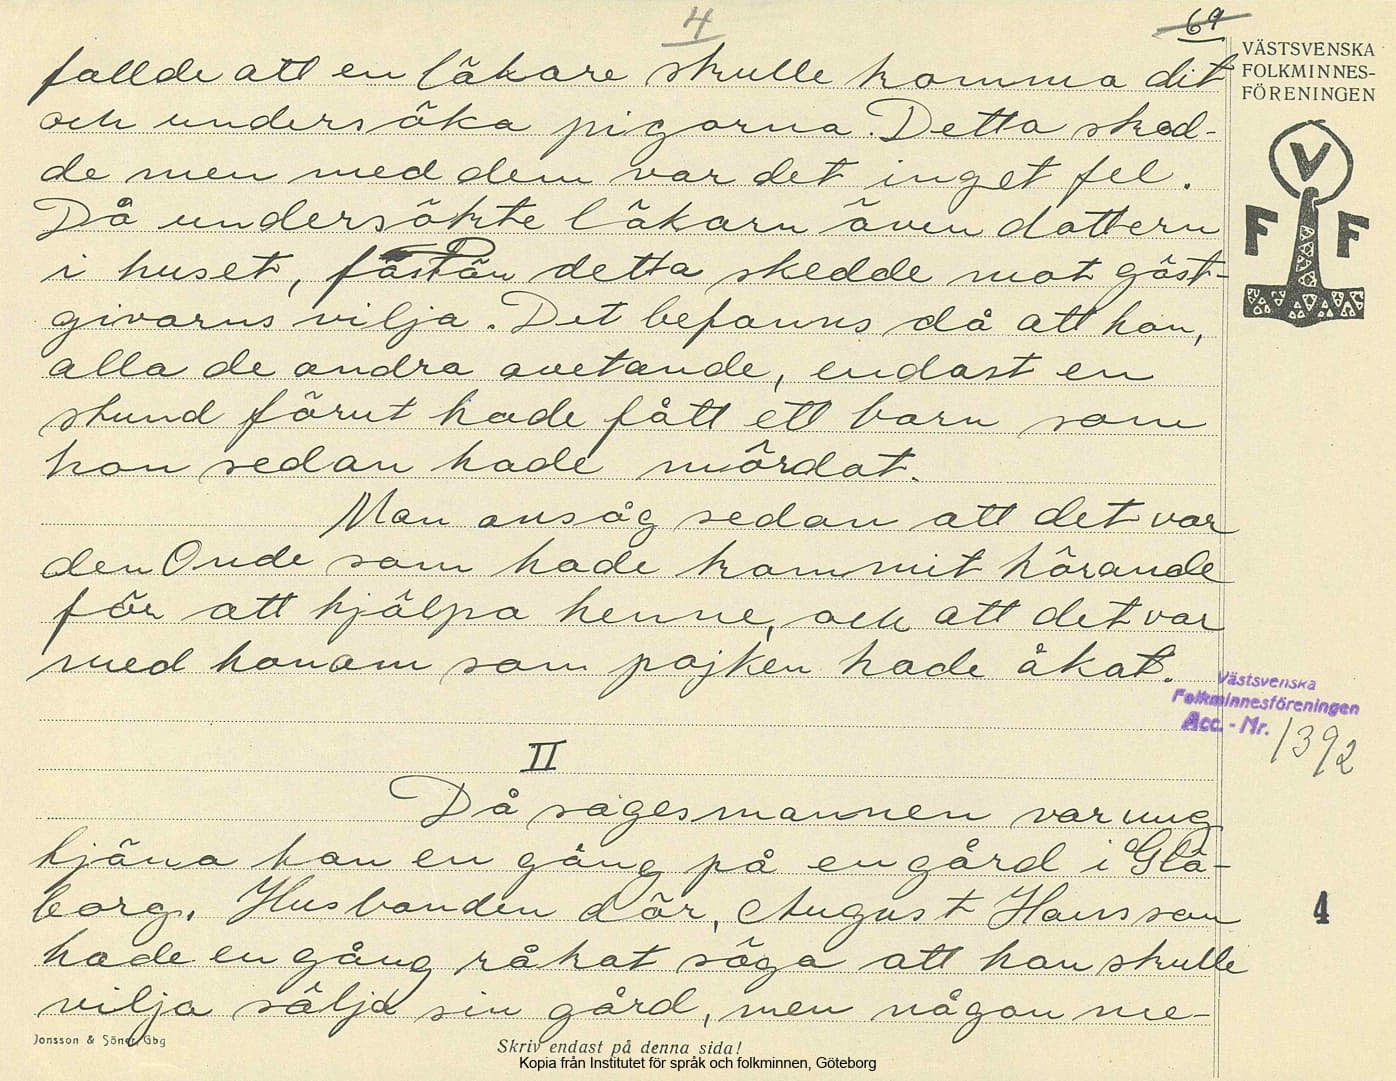 4
69
VÄSTSVENSKA
FOLKMINNES-
FÖRENINGEN
V
F F
fallde att en läkare skulle komma dit
och undersöka pigorna. Detta sked-
de men med dem var det inget fel.
Då undersökte läkarn även dottern
i huset, fastän detta skedde mot gäst-
givarns vilja. Det befanns då att hon,
alla de andra ovetande, endast en
stund förut hade fått ett barn som
hon sedan hade mördat.
Man ansåg sedan att det var
den Onde som hade kommit körande
för att hjälpa henne, och att det var
med honom som pojken hade åkat.
Västsvenska
Folkminnesföreningen
Acc. - Nr. 1392
II
Då sagesmannen var ung
tjäna han en gång på en gård i Glä-
borg. Husbonden där, August Hansson
hade en gång råkat säga att han skulle
vilja sälja sin gård, men någon me-
4
Jonsson & Söner, Gbg
Skriv endast på denna sida!
Kopia från Institutet för språk och folkminnen, Göteborg